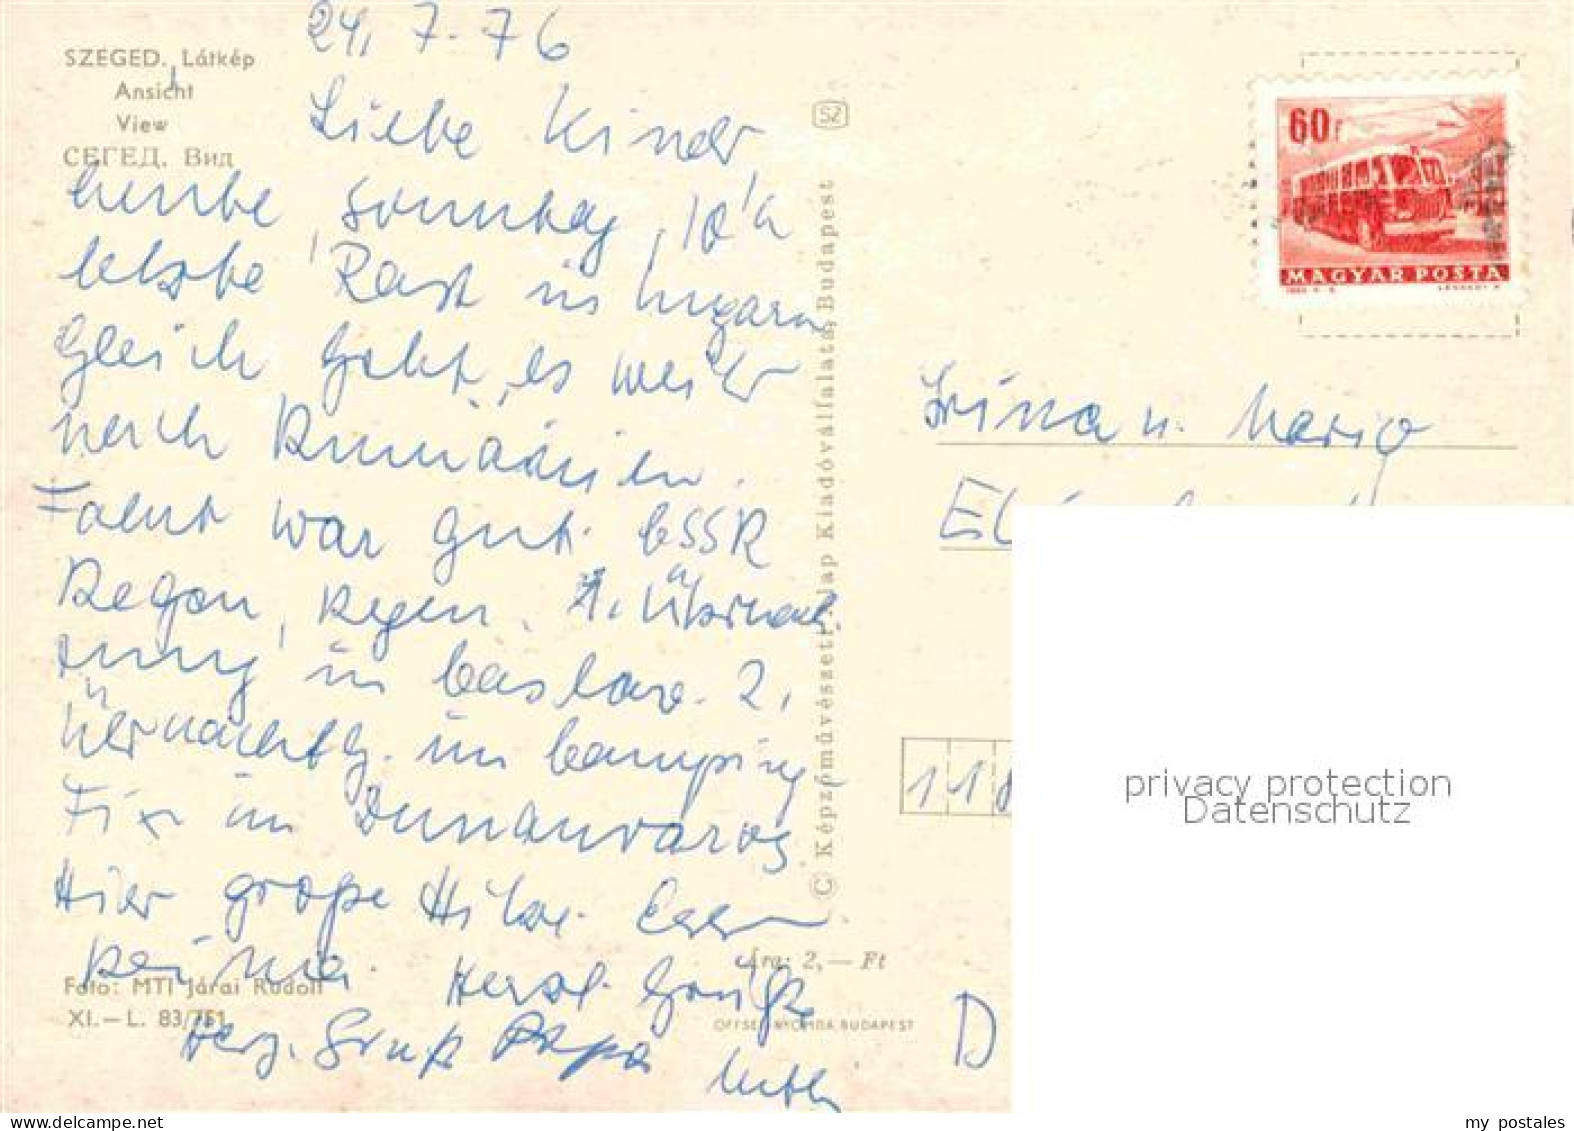 24. 7. 76
SZEGED. Látkép
Ansicht
View
СЕГЕД. Вид
Liebe Kinder
heute, Sonntag, 10h
letzte Rast in Ungarn
Gleich geht es weiter
nach Rumänien.
Fahrt war gut. CSSR
Regen, Regen. 1. Übernach
tung in 2.
Übernachtg. im Camping
Fix in Dunaujvaros
Hier große Hitze.
Herzl. Grüße
Foto: MTI Járai Rudolf
XI.—L. 83/751
Herz. Gruß Papa
Mutti
SZ
© Képzőművészeti Alap Kiadóvállalata, Budapest
Ára: 2,— Ft
OFFSET NYOMDA BUDAPEST
60f
MAGYAR POSTA
u. Mario
D
privacy protection
Datenschutz
my postales